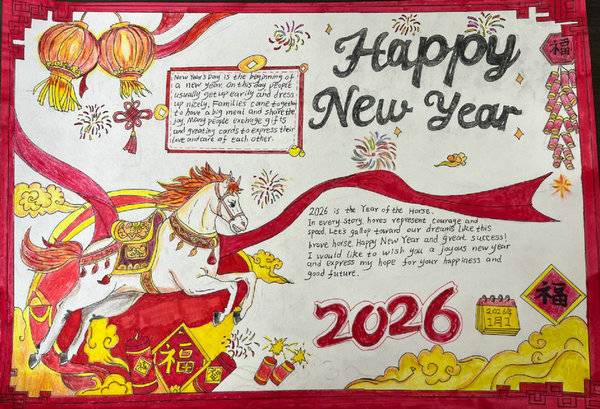 Happy
New Year
福
New Year's Day is the beginning of
a new year. On this day people
usually get up earily and dress
up nicely, Families come together
to have a big meal and share the
joy. Many people exchage gifts
and greating cards to express their
love and care of each other.
2026 is the Year of the Horse.
In every story, hores represent courage and
speed. Let's gallop toward our dreams like this
brave horse. Happy New Year and great success!
I would like to wish you a joyous new year
and express my hope for your happiness and
good future.
2026
2026年
1月1
福
福